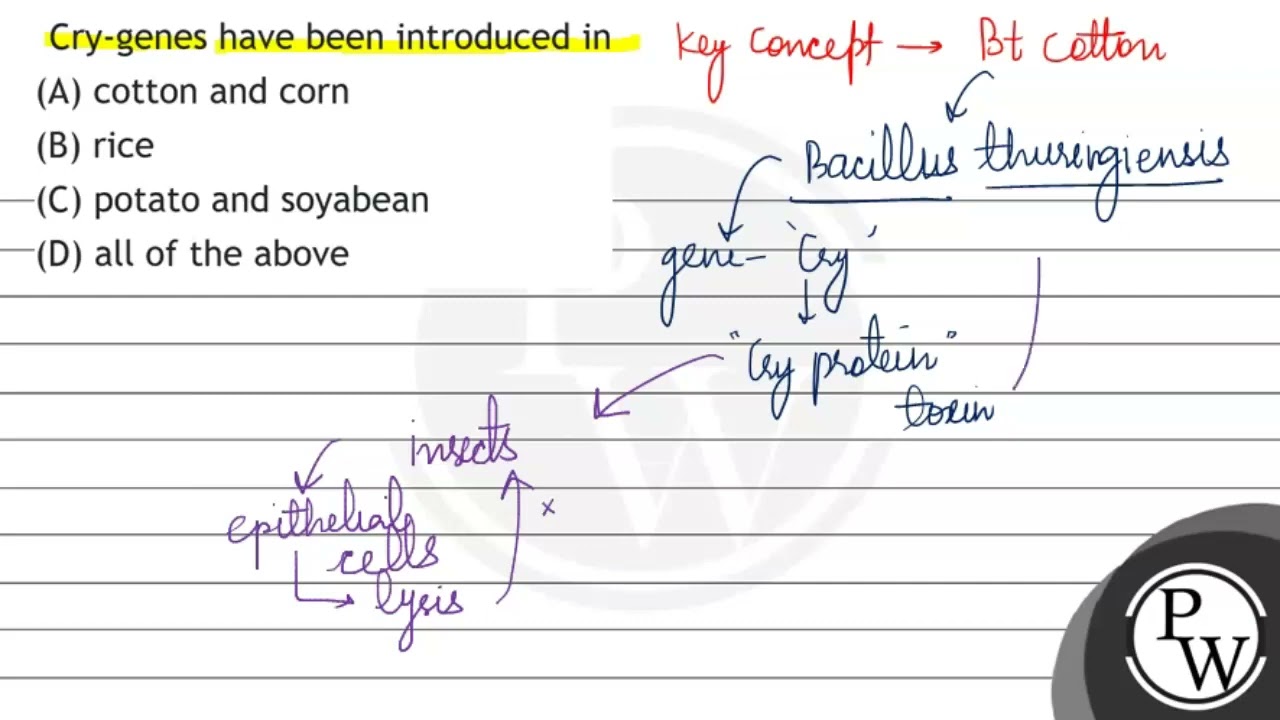 Cry-genes have been introduced in
(A) cotton and corn
(B) rice
(C) potato and soyabean
(D) all of the above
Key concept → Bt cotton
Bacillus thuringiensis
gene- 'Cry'
"Cry protein"
toxin
insects
epithelial
cells
lysis
x
P
W
P
W